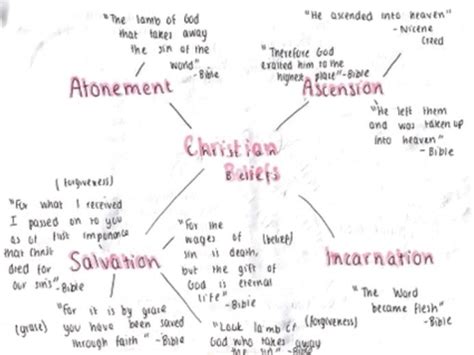 "The lamb of God
that takes away
the sin of the
world"
-Bible
Atonement
"He ascended into heaven"
-Nicene
Creed
"Therefore God
exalted him to the
highest place"-Bible
Ascension
"He left them
and was taken up
into heaven"
-Bible
Christian
Beliefs
(forgiveness)
"For what I received
I passed on to you
as of first importance
that Christ
died for
our sins"-Bible
Salvation
"For the
wages of (belief)
sin is death,
but the gift
of God is eternal
life" -Bible
Incarnation
"The Word
became flesh"
-Bible
"For it is by grace
(grace) you have been saved
through faith" -Bible
"Look lamb of (forgiveness)
God who takes away